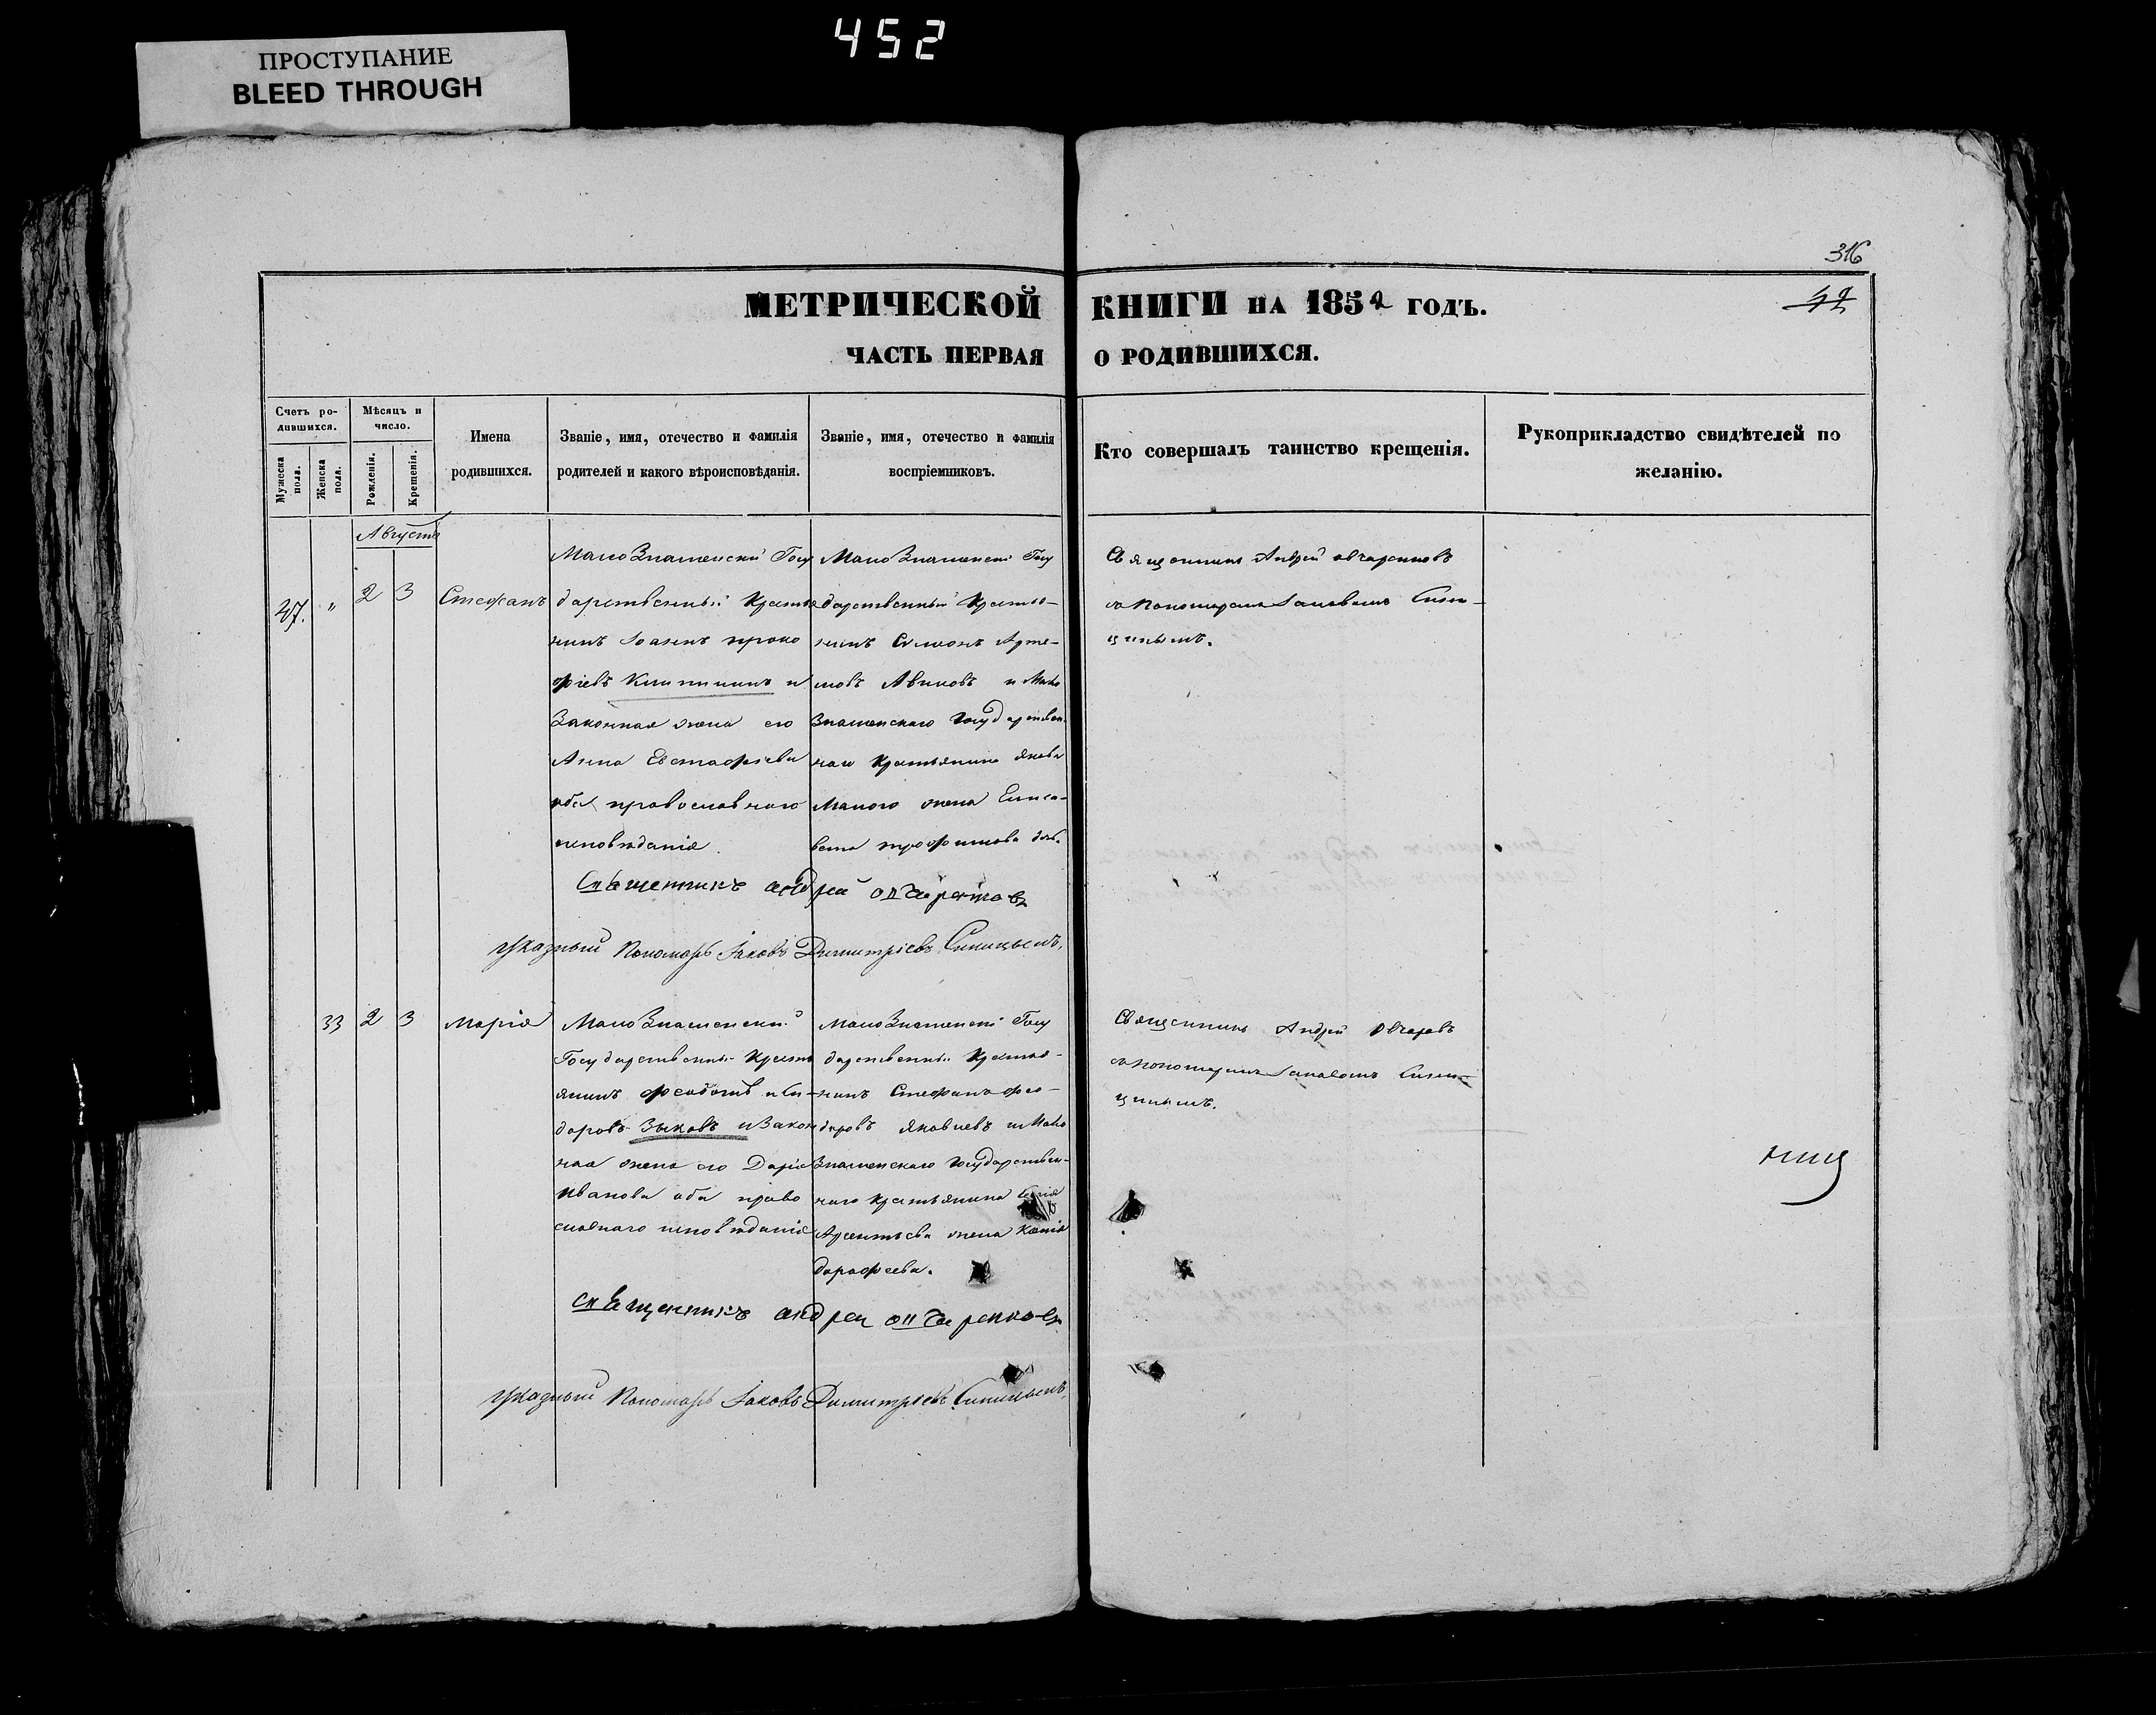 452
ПРОСТУПАНИЕ
BLEED THROUGH
316
42
МЕТРИЧЕСКОЙ КНИГИ НА 1852 ГОДЪ.
ЧАСТЬ ПЕРВАЯ О РОДИВШИХСЯ.
Счетъ ро-
дившихся.
Мужеска пола.
Женска пола.
Мѣсяцъ и
число.
Рожденія.
Крещенія.
Имена
родившихся.
Званіе, имя, отечество и фамилія
родителей и какого вѣроисповѣданія.
Званіе, имя, отечество и фамилія
воспріемниковъ.
Кто совершалъ таинство крещенія.
Рукоприкладство свидѣтелей по
желанію.
Августъ
47. " 2 3 Стефанъ
Мало Знаменскій Госу
дарственный Кресть
нинъ Іоаннъ проко
фіевъ и
Законная жена его
Анна Евстафіева
оба православнаго
исповѣданія
Мало Знаменскій Госу
дарственный Крестья-
нинъ Симонъ Арте-
мовъ и Мало
Знаменскаго Государствен
наго Крестьянина Якова
Малого жена Елиса-
вета трофимова дочь.
Священникъ Андрей
съ Пономаремъ Іаковомъ Сини-
цинымъ.
Священникъ андрей
Указный Пономарь Іаковъ Димитріевъ Синицынъ.
33 2 3 Марія
Мало Знаменскій
Государственный Кресть
янинъ Феодотъ Иси-
доровъ Зыковъ и Закон
ная жена его Дарія
Иванова оба право
славнаго исповѣданія
Мало Знаменскій Госу
дарственный Крестья-
нинъ Стефанъ Фео-
доровъ Яковлевъ и Мало
Знаменскаго Государствен-
наго крестьянина
Арсентьева жена Ксенія
дорофеева.
Священникъ Андрей
съ пономаремъ Іаковомъ Сини-
цинымъ.
священникъ андреи
Указный Пономарь Іаковъ Димитріевъ Синицынъ.